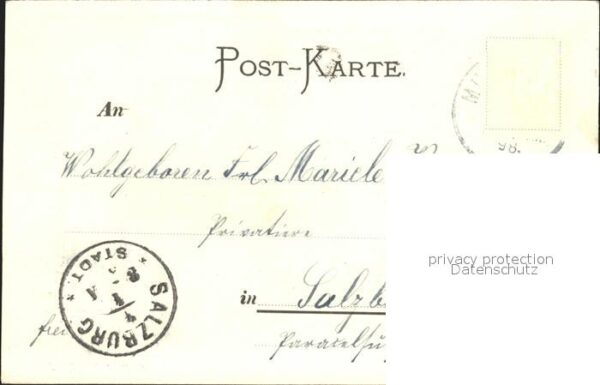 POST-KARTE.
An
Wohlgeboren Frl. Mariele
Privatiere
privacy protection
Datenschutz
in Salzb
frei
Paracelsus
SALZBURG
* STADT. *
98.